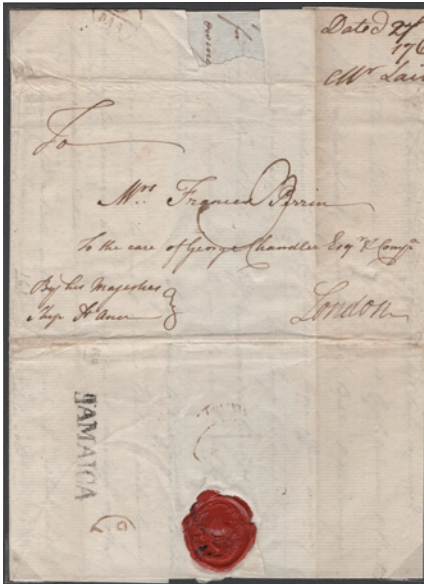 Dated 27
176
Mr Lai
To
Mrs. Frances Perrin
To the care of George Chandler Esqr & Compa
By his Majesties
Ship St Ann
London
JAMAICA